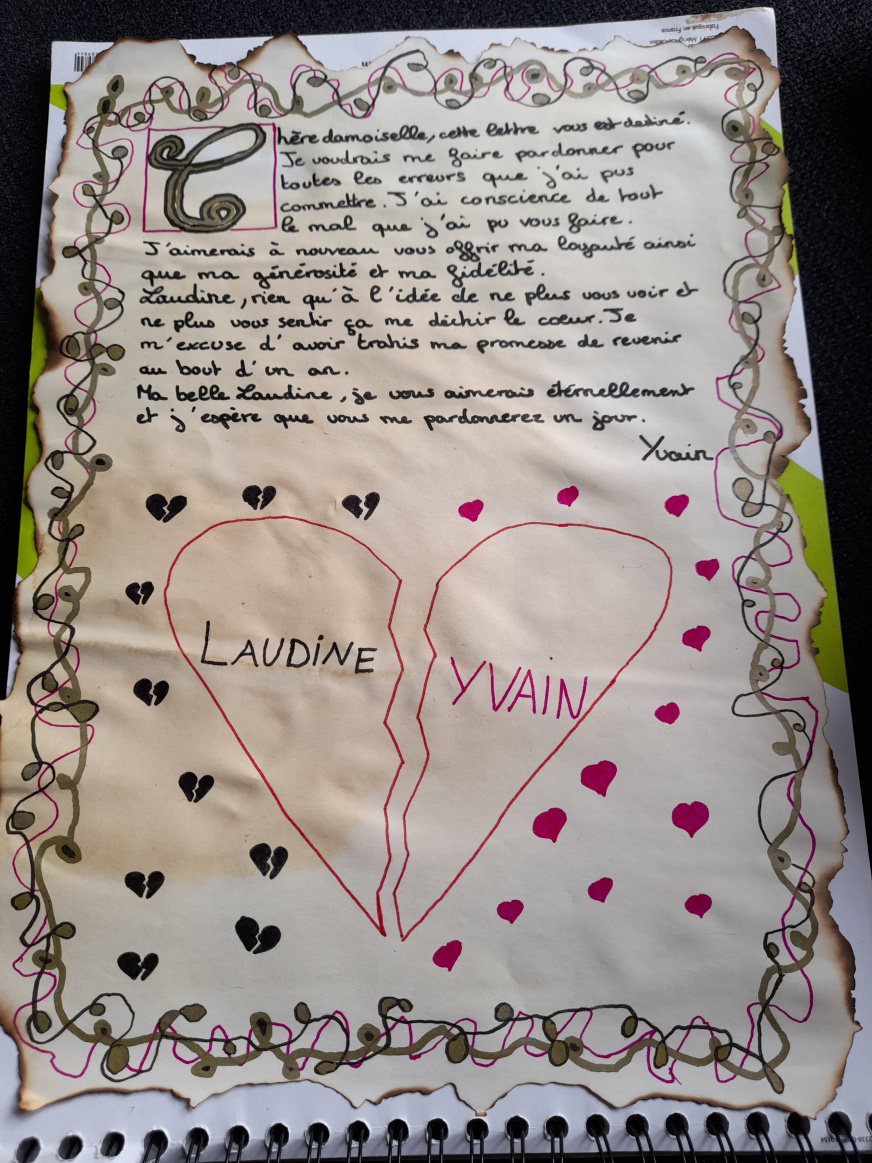 Fabriqué en France
Chère damoiselle, cette lettre vous est destiné.
Je voudrais me faire pardonner pour
toutes les erreurs que j'ai pus
commettre. J'ai conscience de tout
le mal que j'ai pu vous faire.
J'aimerais à nouveau vous offrir ma loyauté ainsi
que ma générosité et ma fidélité.
Laudine, rien qu'à l'idée de ne plus vous voir et
ne plus vous sentir ça me déchir le cœur. Je
m'excuse d'avoir trahis ma promesse de revenir
au bout d'un an.
Ma belle Laudine, je vous aimerais éternellement
et j'espère que vous me pardonnerez un jour.
Yvain
LAUDINE
YVAIN